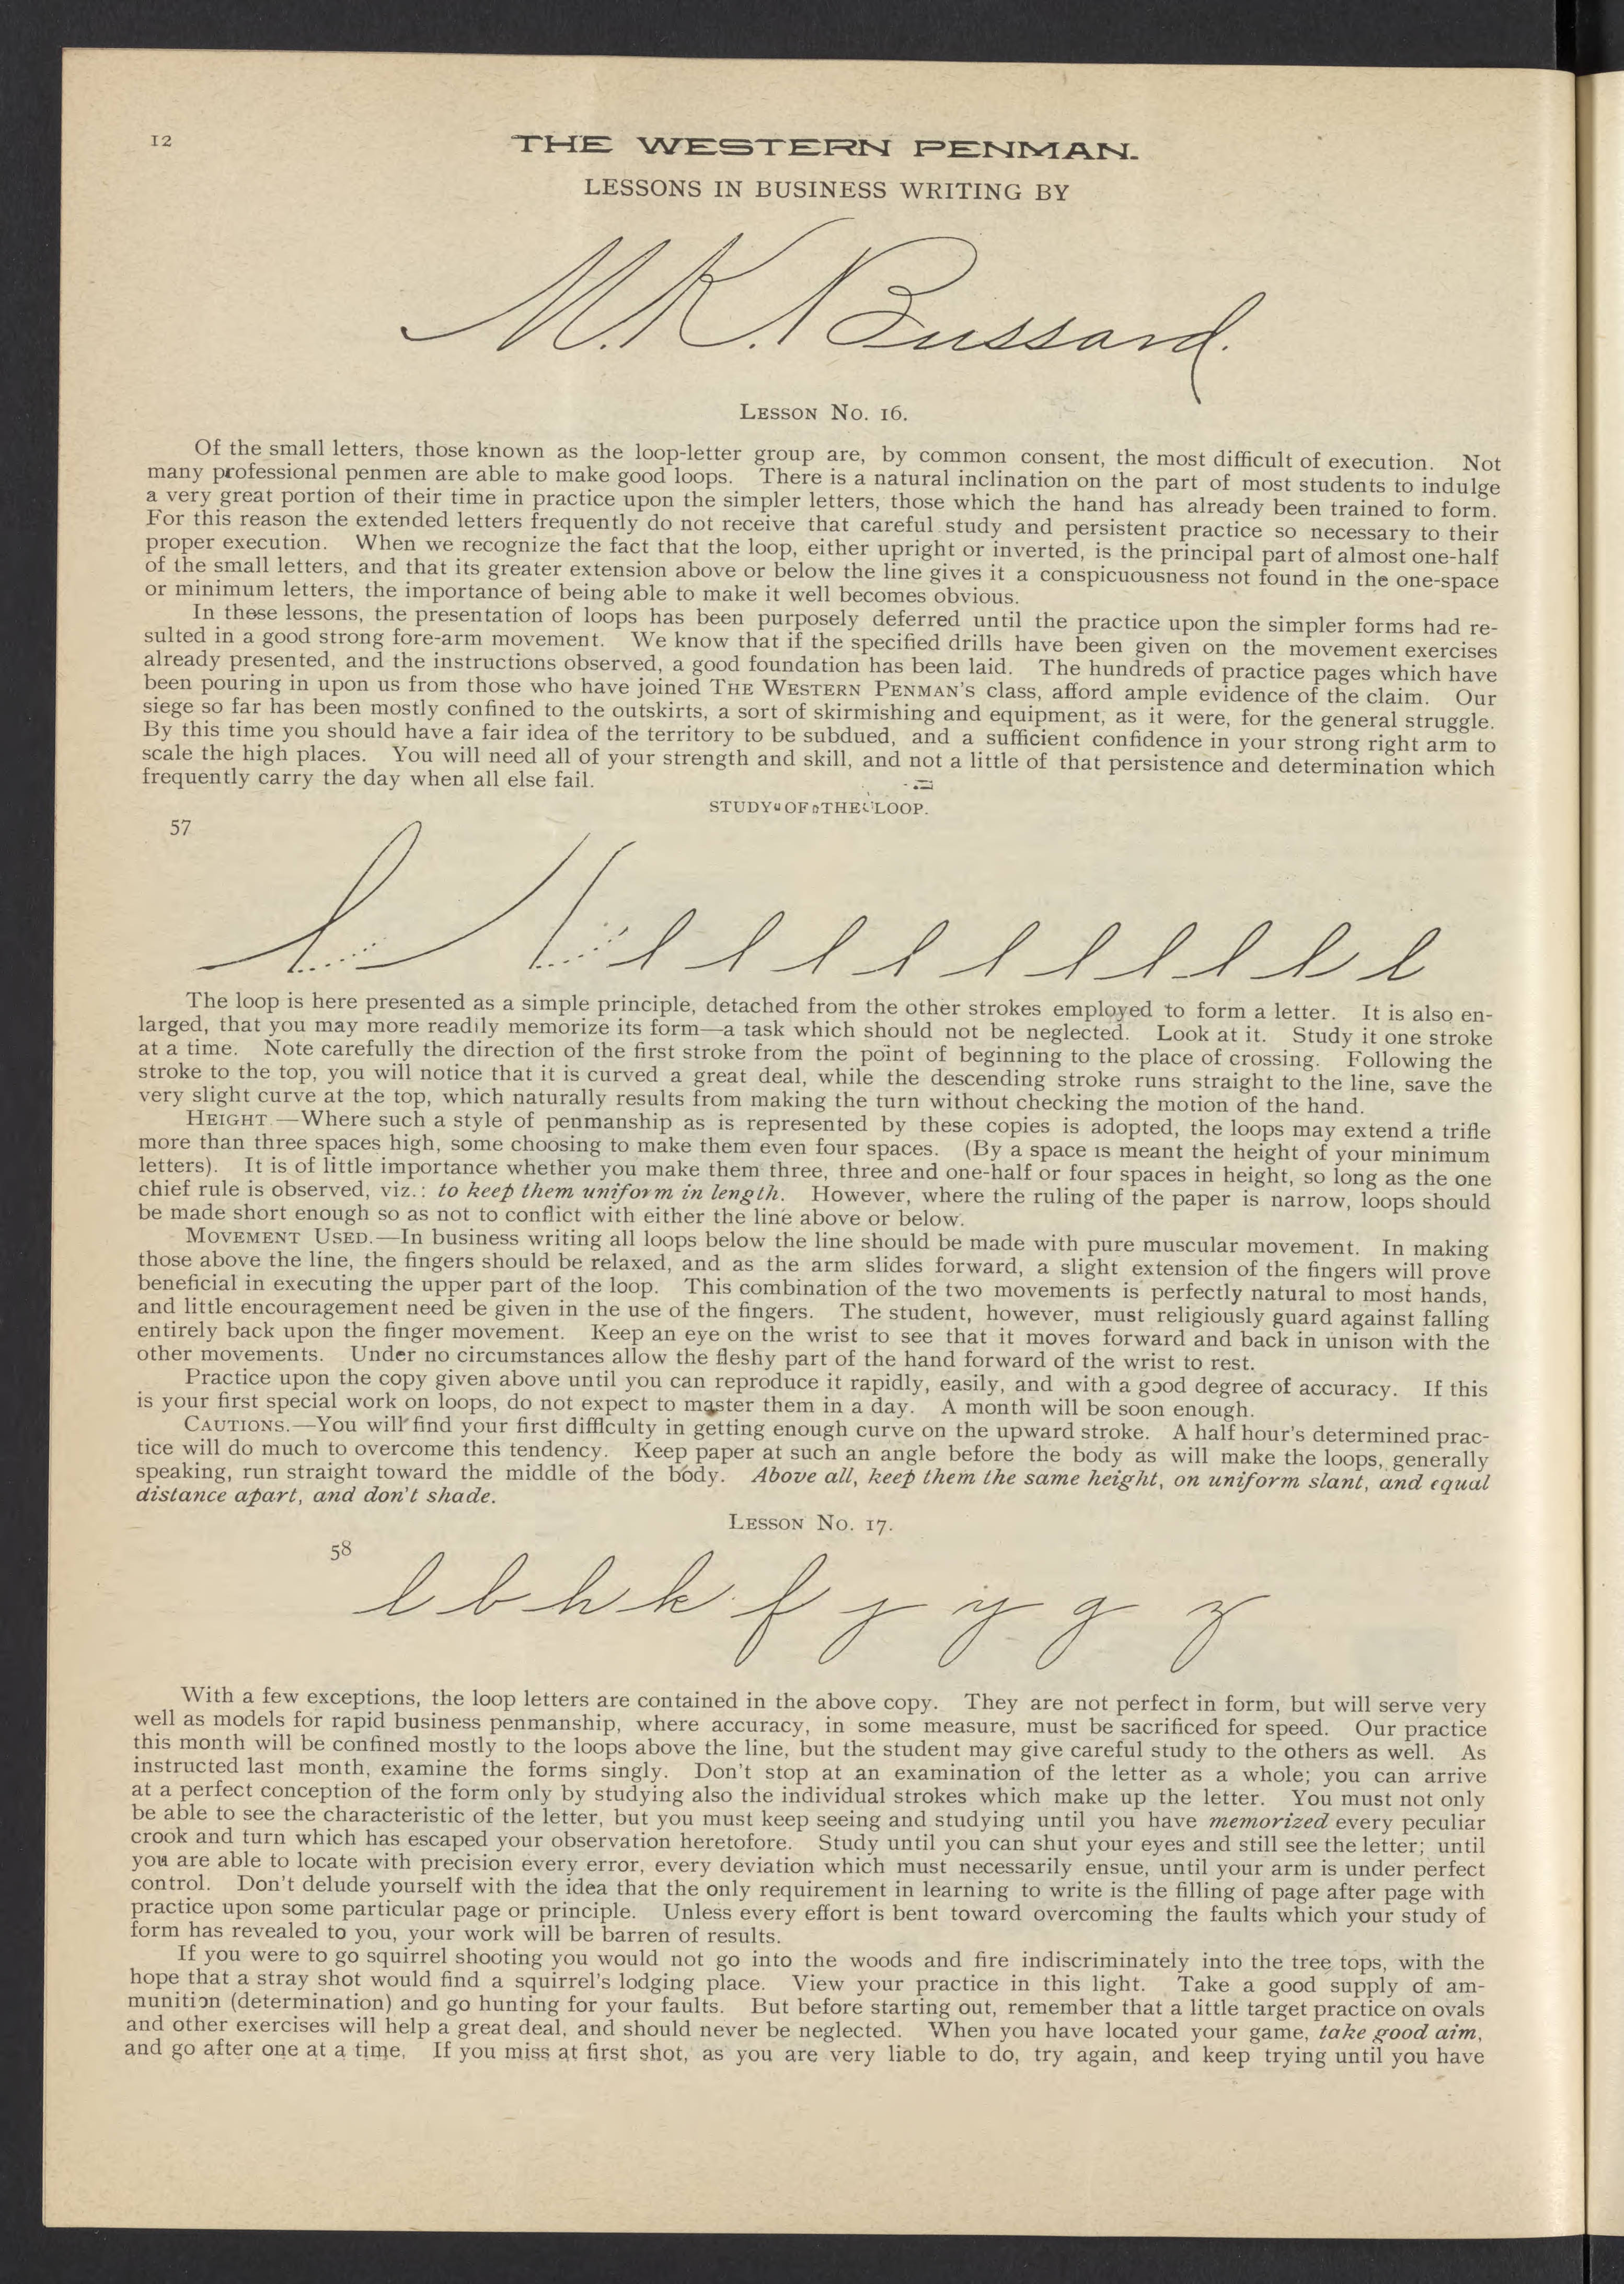 12
THE WESTERN PENMAN.
LESSONS IN BUSINESS WRITING BY
M. K. Bussard.
LESSON NO. 16.
Of the small letters, those known as the loop-letter group are, by common consent, the most difficult of execution. Not
many professional penmen are able to make good loops. There is a natural inclination on the part of most students to indulge
a very great portion of their time in practice upon the simpler letters, those which the hand has already been trained to form.
For this reason the extended letters frequently do not receive that careful study and persistent practice so necessary to their
proper execution. When we recognize the fact that the loop, either upright or inverted, is the principal part of almost one-half
of the small letters, and that its greater extension above or below the line gives it a conspicuousness not found in the one-space
or minimum letters, the importance of being able to make it well becomes obvious.
In these lessons, the presentation of loops has been purposely deferred until the practice upon the simpler forms had re-
sulted in a good strong fore-arm movement. We know that if the specified drills have been given on the movement exercises
already presented, and the instructions observed, a good foundation has been laid. The hundreds of practice pages which have
been pouring in upon us from those who have joined THE WESTERN PENMAN'S class, afford ample evidence of the claim. Our
siege so far has been mostly confined to the outskirts, a sort of skirmishing and equipment, as it were, for the general struggle.
By this time you should have a fair idea of the territory to be subdued, and a sufficient confidence in your strong right arm to
scale the high places. You will need all of your strength and skill, and not a little of that persistence and determination which
frequently carry the day when all else fail.
STUDY OF THE LOOP.
57
l l l l l l l l l l
The loop is here presented as a simple principle, detached from the other strokes employed to form a letter. It is also en-
larged, that you may more readily memorize its form—a task which should not be neglected. Look at it. Study it one stroke
at a time. Note carefully the direction of the first stroke from the point of beginning to the place of crossing. Following the
stroke to the top, you will notice that it is curved a great deal, while the descending stroke runs straight to the line, save the
very slight curve at the top, which naturally results from making the turn without checking the motion of the hand.
HEIGHT.—Where such a style of penmanship as is represented by these copies is adopted, the loops may extend a trifle
more than three spaces high, some choosing to make them even four spaces. (By a space is meant the height of your minimum
letters). It is of little importance whether you make them three, three and one-half or four spaces in height, so long as the one
chief rule is observed, viz.: to keep them uniform in length. However, where the ruling of the paper is narrow, loops should
be made short enough so as not to conflict with either the line above or below.
MOVEMENT USED.—In business writing all loops below the line should be made with pure muscular movement. In making
those above the line, the fingers should be relaxed, and as the arm slides forward, a slight extension of the fingers will prove
beneficial in executing the upper part of the loop. This combination of the two movements is perfectly natural to most hands,
and little encouragement need be given in the use of the fingers. The student, however, must religiously guard against falling
entirely back upon the finger movement. Keep an eye on the wrist to see that it moves forward and back in unison with the
other movements. Under no circumstances allow the fleshy part of the hand forward of the wrist to rest.
Practice upon the copy given above until you can reproduce it rapidly, easily, and with a good degree of accuracy. If this
is your first special work on loops, do not expect to master them in a day. A month will be soon enough.
CAUTIONS.—You will find your first difficulty in getting enough curve on the upward stroke. A half hour's determined prac-
tice will do much to overcome this tendency. Keep paper at such an angle before the body as will make the loops, generally
speaking, run straight toward the middle of the body. Above all, keep them the same height, on uniform slant, and equal
distance apart, and don't shade.
LESSON NO. 17.
58
l b h k f j y g z
With a few exceptions, the loop letters are contained in the above copy. They are not perfect in form, but will serve very
well as models for rapid business penmanship, where accuracy, in some measure, must be sacrificed for speed. Our practice
this month will be confined mostly to the loops above the line, but the student may give careful study to the others as well. As
instructed last month, examine the forms singly. Don't stop at an examination of the letter as a whole; you can arrive
at a perfect conception of the form only by studying also the individual strokes which make up the letter. You must not only
be able to see the characteristic of the letter, but you must keep seeing and studying until you have memorized every peculiar
crook and turn which has escaped your observation heretofore. Study until you can shut your eyes and still see the letter; until
you are able to locate with precision every error, every deviation which must necessarily ensue, until your arm is under perfect
control. Don't delude yourself with the idea that the only requirement in learning to write is the filling of page after page with
practice upon some particular page or principle. Unless every effort is bent toward overcoming the faults which your study of
form has revealed to you, your work will be barren of results.
If you were to go squirrel shooting you would not go into the woods and fire indiscriminately into the tree tops, with the
hope that a stray shot would find a squirrel's lodging place. View your practice in this light. Take a good supply of am-
munition (determination) and go hunting for your faults. But before starting out, remember that a little target practice on ovals
and other exercises will help a great deal, and should never be neglected. When you have located your game, take good aim,
and go after one at a time. If you miss at first shot, as you are very liable to do, try again, and keep trying until you have